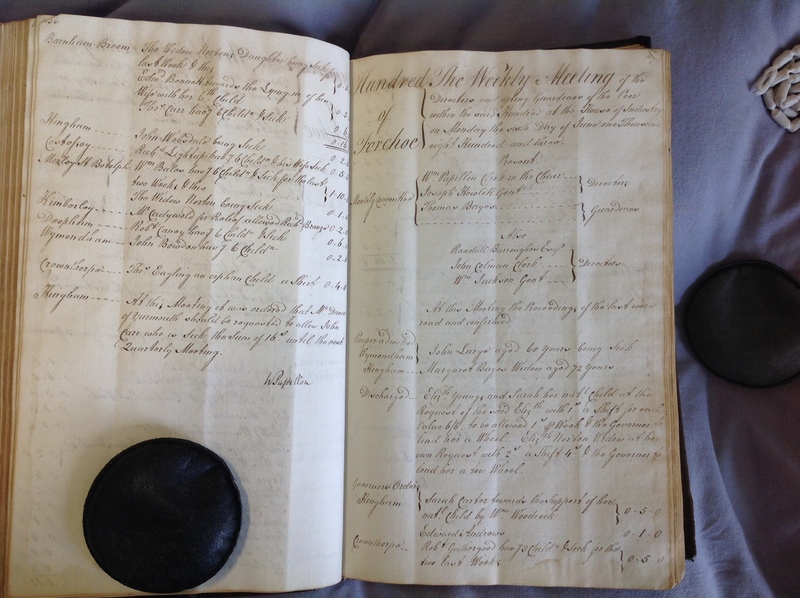 Barnham Broom The Widow Nortons Daughter being Sick
last Week & this
Edwd Bennett towards the Lying in of his
Wife with her 6th Child
Thos Carr hav'g 6 Childn & Sick
Hingham John Wooddald being Sick
Costessy Richd Lightup hav'g 6 Childn & his Wife Sick
Morley St Botolph Wm Bales hav'g 6 Childn & Sick for the last
two Weeks & this
The Widow Norton being Sick
Kimberley Mr Cadywold for Relief allowed Richd 0-2-
Deopham Robt Caney hav'g 6 Childn & Sick 0-6-
Wymondham John Bowdon hav'g 6 Childn 0-2-
Crownthorpe Thos Eagling an orphan Child a Shirt 0-4-
Hingham At this Meeting it was ordered that Mr
of Yarmouth should be requested to allow John
Carr who is Sick the Sum of 16s until the next
Quarterly Meeting.
W Papillon
Hundred of Forehoe
The Weekly Meeting of the
Directors and acting Guardians of the Poor
within the said Hundred at the House of Industry
on Monday the sixth Day of June one Thousand
eight Hundred and three.
Present
Wm Papillon Clerk in the Chair
Joseph Howlett Gent Directors
Weekly Committee
Thomas Bayes Guardians
Also
Randall Burroughes Esqr
John Colman Clerk Directors
Wm Jackson Gent
At this Meeting the Proceedings of the last were
read and confirmed
Pauper admitted
Wymondham John Large aged 60 years being Sick
Hingham Margaret Bayes Widow aged 72 Years
Discharged Elizth Young and Sarah her natl Child at the
Request of the said Elizth with 1s a Shift for each
Value 6/6. to be allowed 1s ℔ Week & the Governor to
lend her a Wheel. Elizth Norton Widow at her
own Request with 2s a Shift 4s & the Governor to
lend her a Wheel
Governors Orders
Hingham Sarah Carter towards the Support of her
natl Child by Wm Woodcock 0-5-0
Edward Andrews 0-1-0
Crownthorpe Robt Gathergood hav'g 5 Childn & Sick for the
two last Weeks 0-5-0